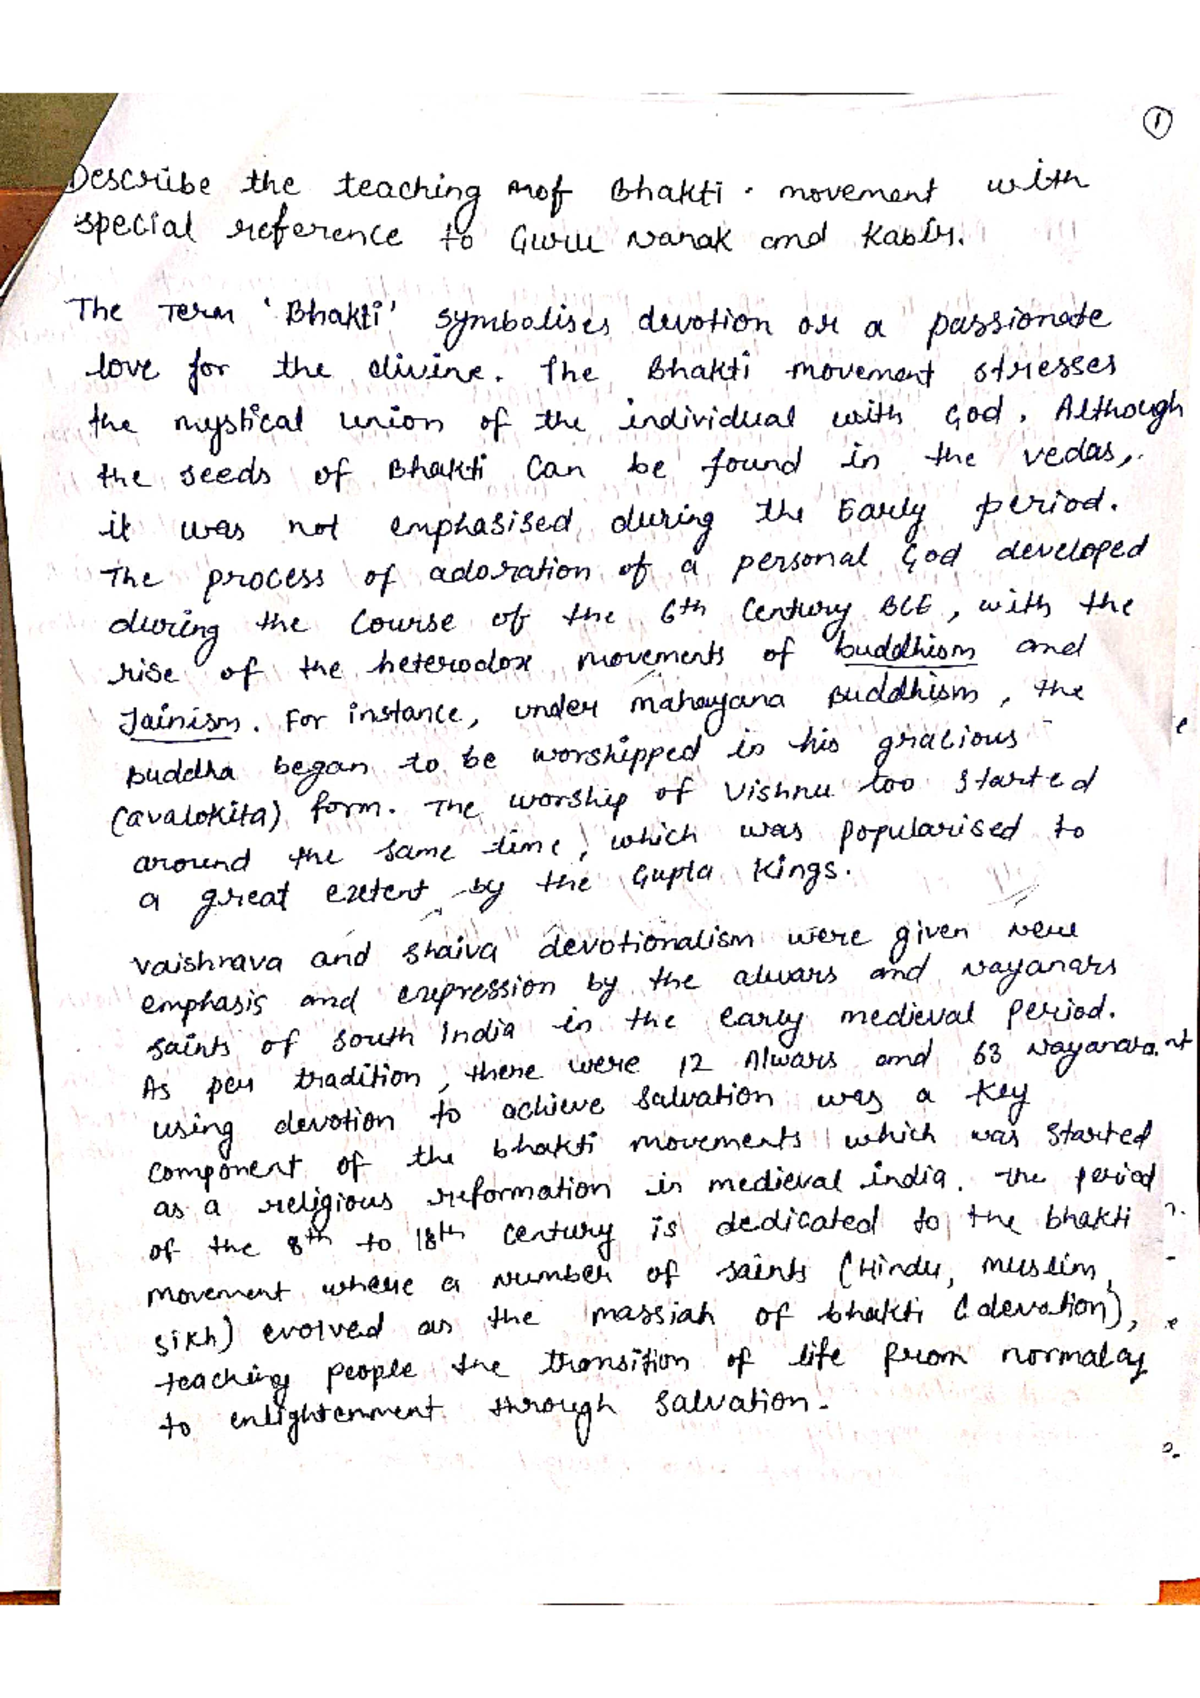 1
Describe the teaching of Bhakti movement with
special reference to Guru Nanak and Kabir.
The Term 'Bhakti' symbolises devotion or a passionate
love for the divine. The Bhakti movement stresses
the mystical union of the individual with God. Although
the seeds of Bhakti can be found in the vedas,
it was not emphasised during the Early period.
The process of adoration of a personal God developed
during the course of the 6th Century BCE, with the
rise of the heterodox movements of buddhism and
Jainism. For instance, under mahayana Buddhism, the
Buddha began to be worshipped in his gracious
(avalokita) form. The worship of Vishnu too started
around the same time, which was popularised to
a great extent by the Gupta Kings.
Vaishnava and Shaiva devotionalism were given new
emphasis and expression by the alwars and Nayanars
saints of South India in the early medieval period.
As per tradition, there were 12 Alwars and 63 Nayanars.
using devotion to achieve salvation was a key
component of the bhakti movements which was started
as a religious reformation in medieval india. The period
of the 8th to 18th century is dedicated to the bhakti
movement where a number of saints (Hindu, Muslim,
Sikh) evolved as the massiah of bhakti (devotion),
teaching people the transition of life from normalcy
to enlightenment through salvation.